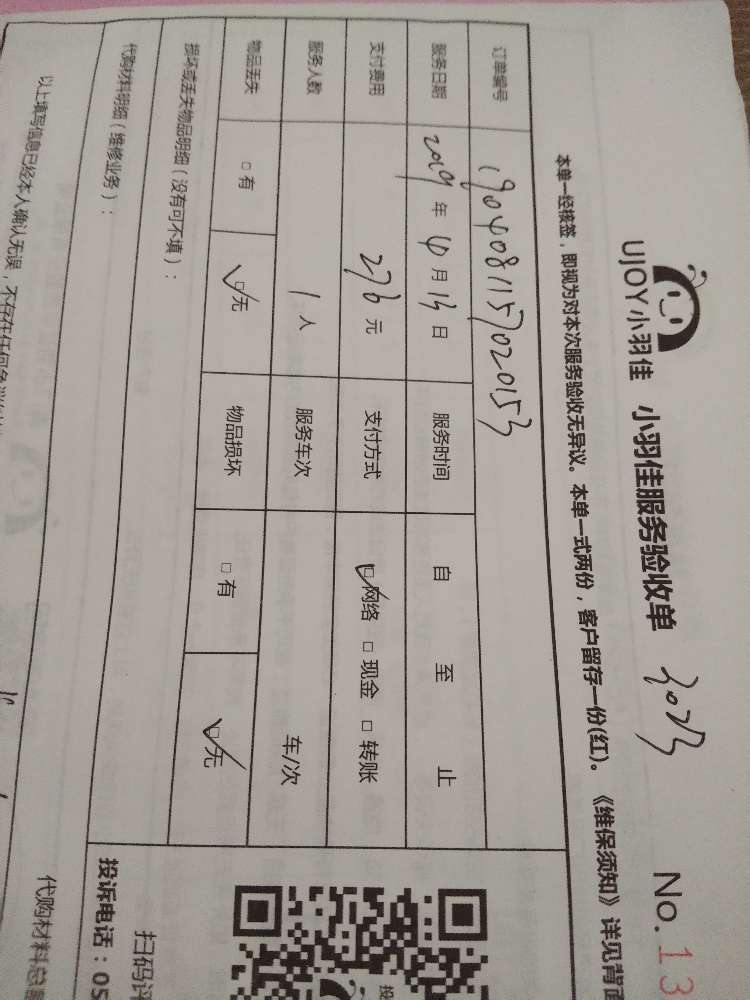 UJOY小羽佳 小羽佳服务验收单 3023 No.13
本单一经核签，即视为对本次服务验收无异议。本单一式两份，客户留存一份(红)。《维保须知》详见背面
订单编号 1904081157020153
服务日期 2019年4月13日 服务时间 自 至 止
支付费用 276元 支付方式 ☑网络 □现金 □转账
服务人数 1人 服务车次 车/次
物品丢失 □有 ☑无 物品损坏 □有 ☑无
损坏或丢失物品明细（没有可不填）：
代购材料明细（维修业务）：
以上填写信息已经本人确认无误，不存在任何
扫码评
投诉电话：05
代购材料总